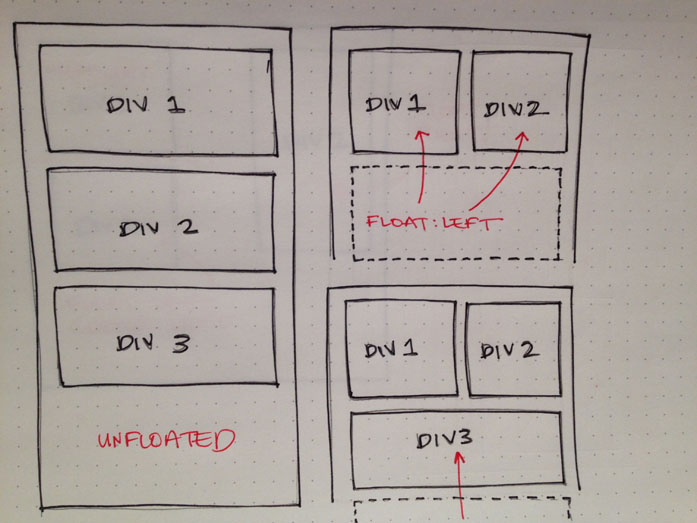 DIV 1
DIV 2
DIV 3
UNFLOATED
DIV 1
DIV 2
FLOAT:LEFT
DIV 1
DIV 2
DIV3